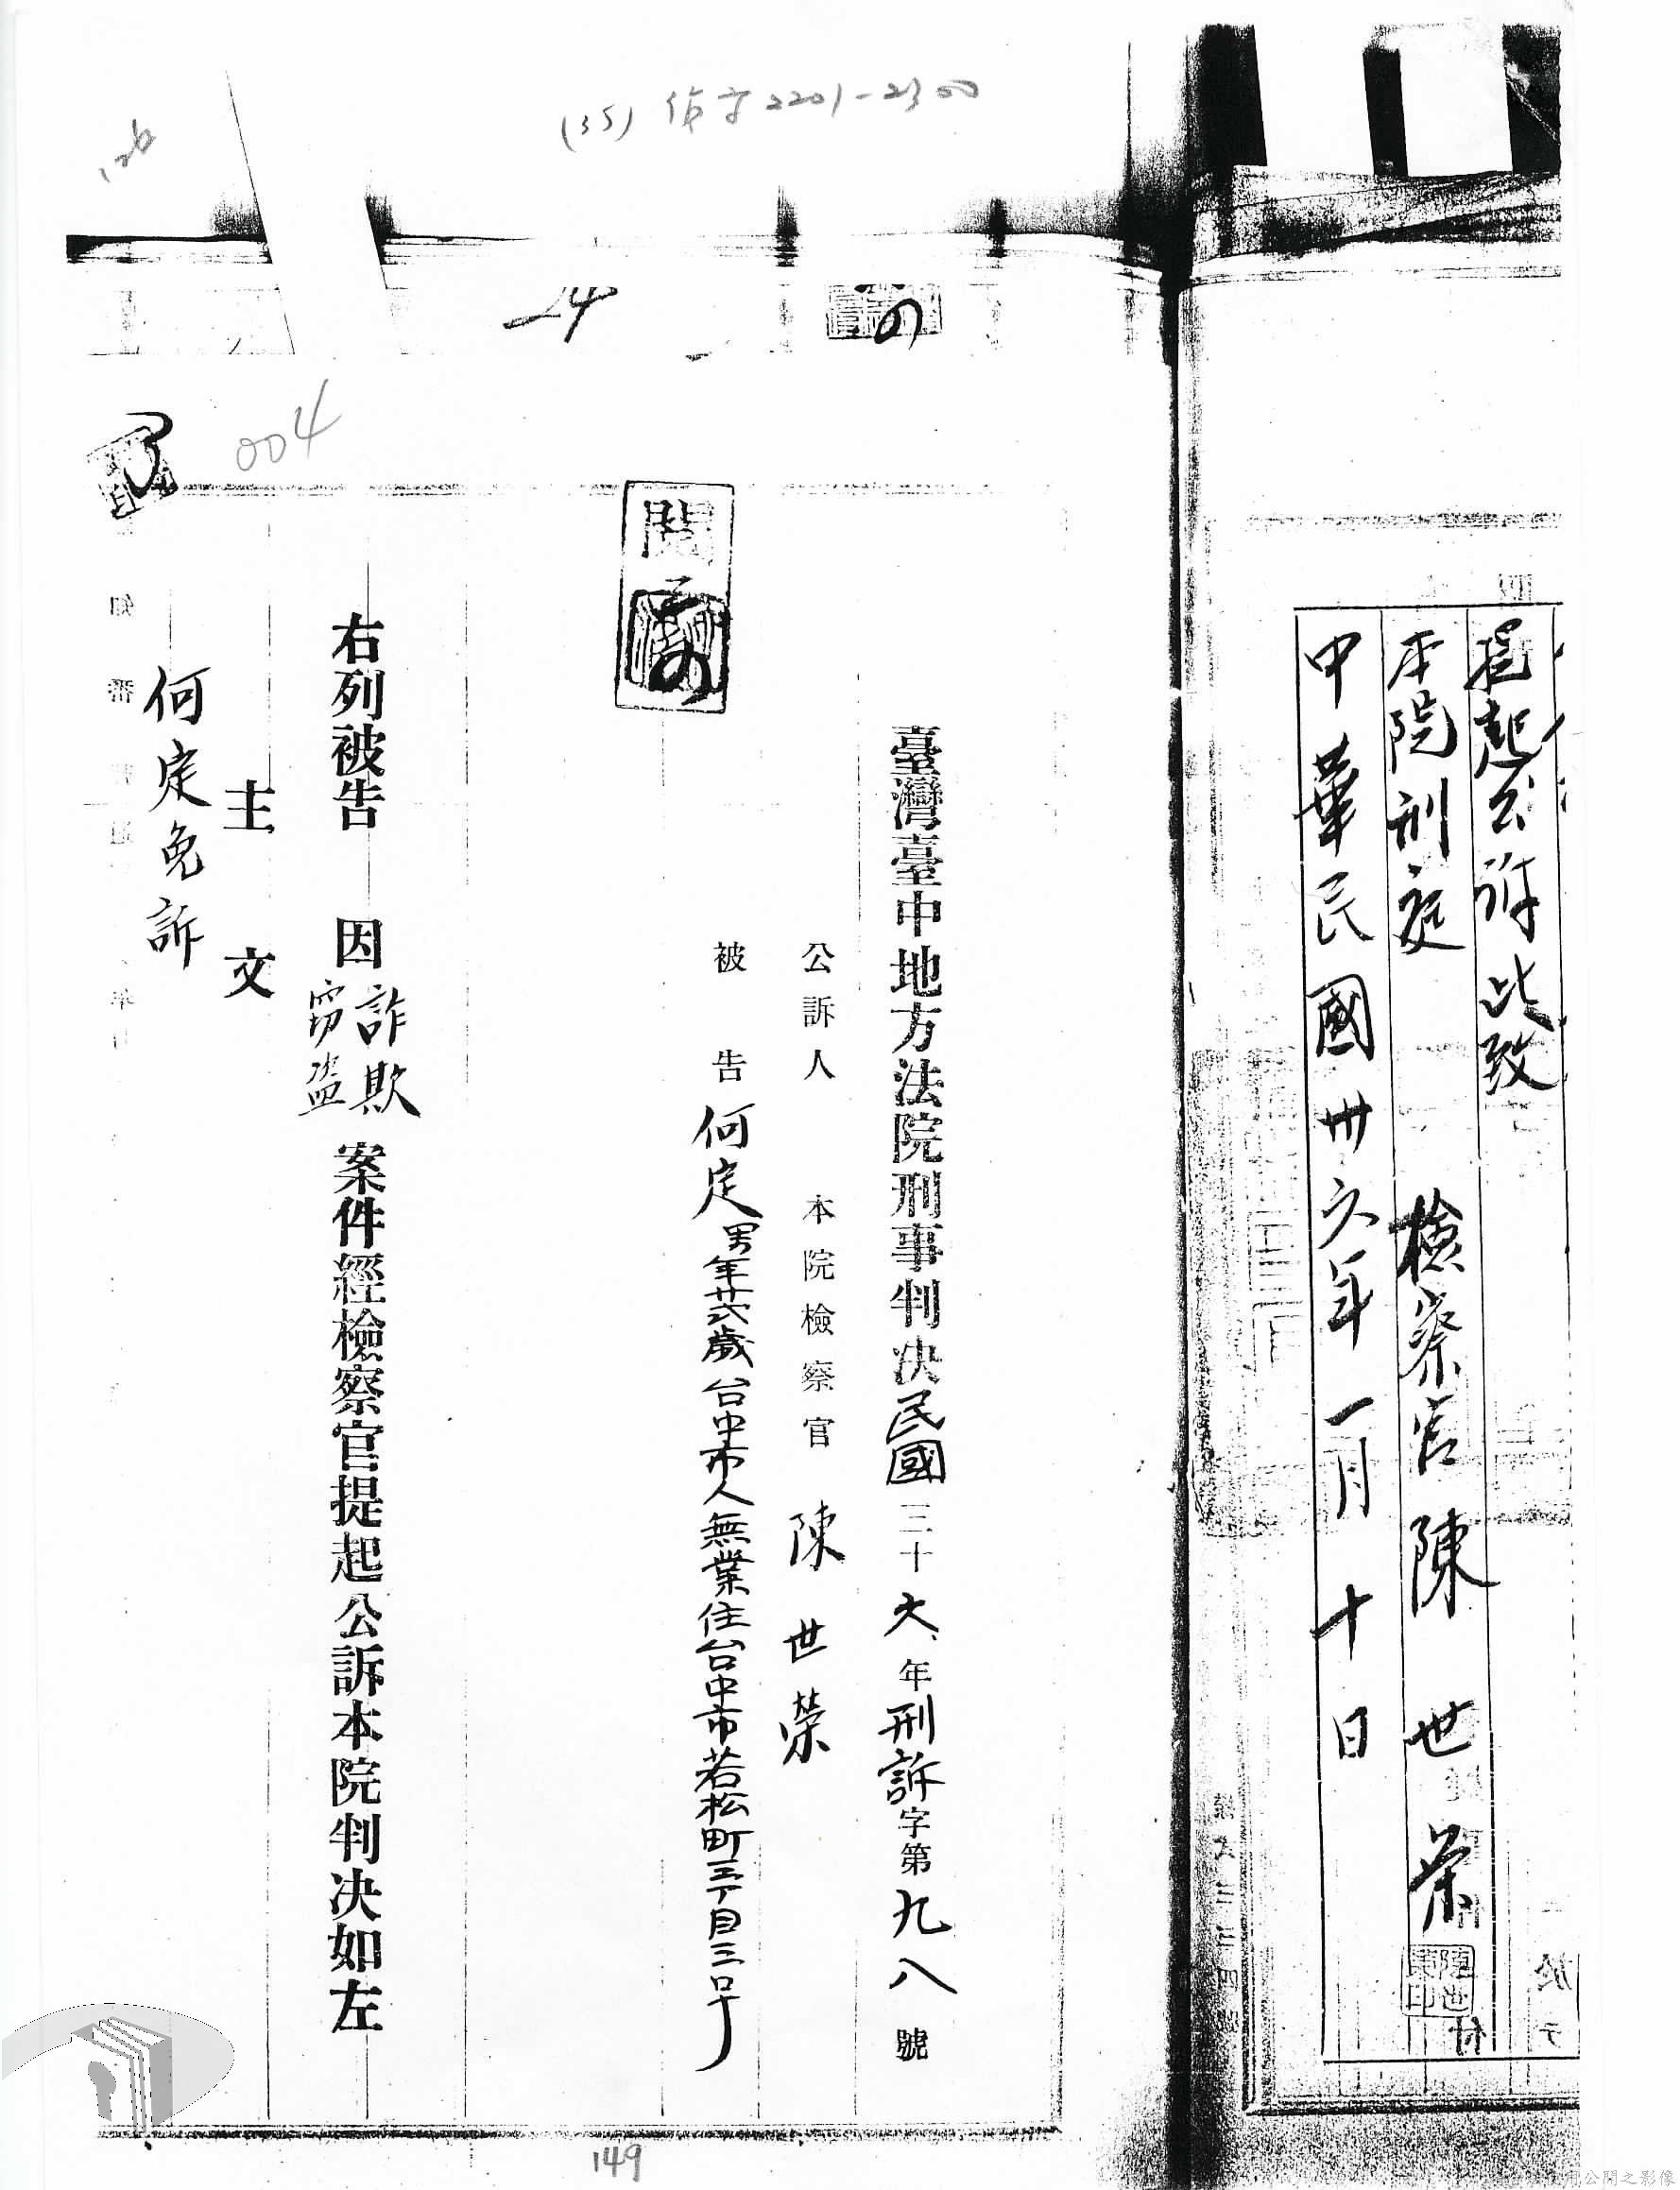 (35) 偵字2201-2300
126
提起公訴此致
本院刑庭 檢察官陳世荣
中華民國卅六年一月十日
臺灣臺中地方法院刑事判決民國三十六年刑訴字第九八號
公訴人 本院檢察官 陳世榮
被告 何定男年廿六歲台中市人無業住台中市若松町三丁目三号
閱
右列被告 因詐欺竊盜案件經檢察官提起公訴本院判決如左
主文
何定免訴
004
149